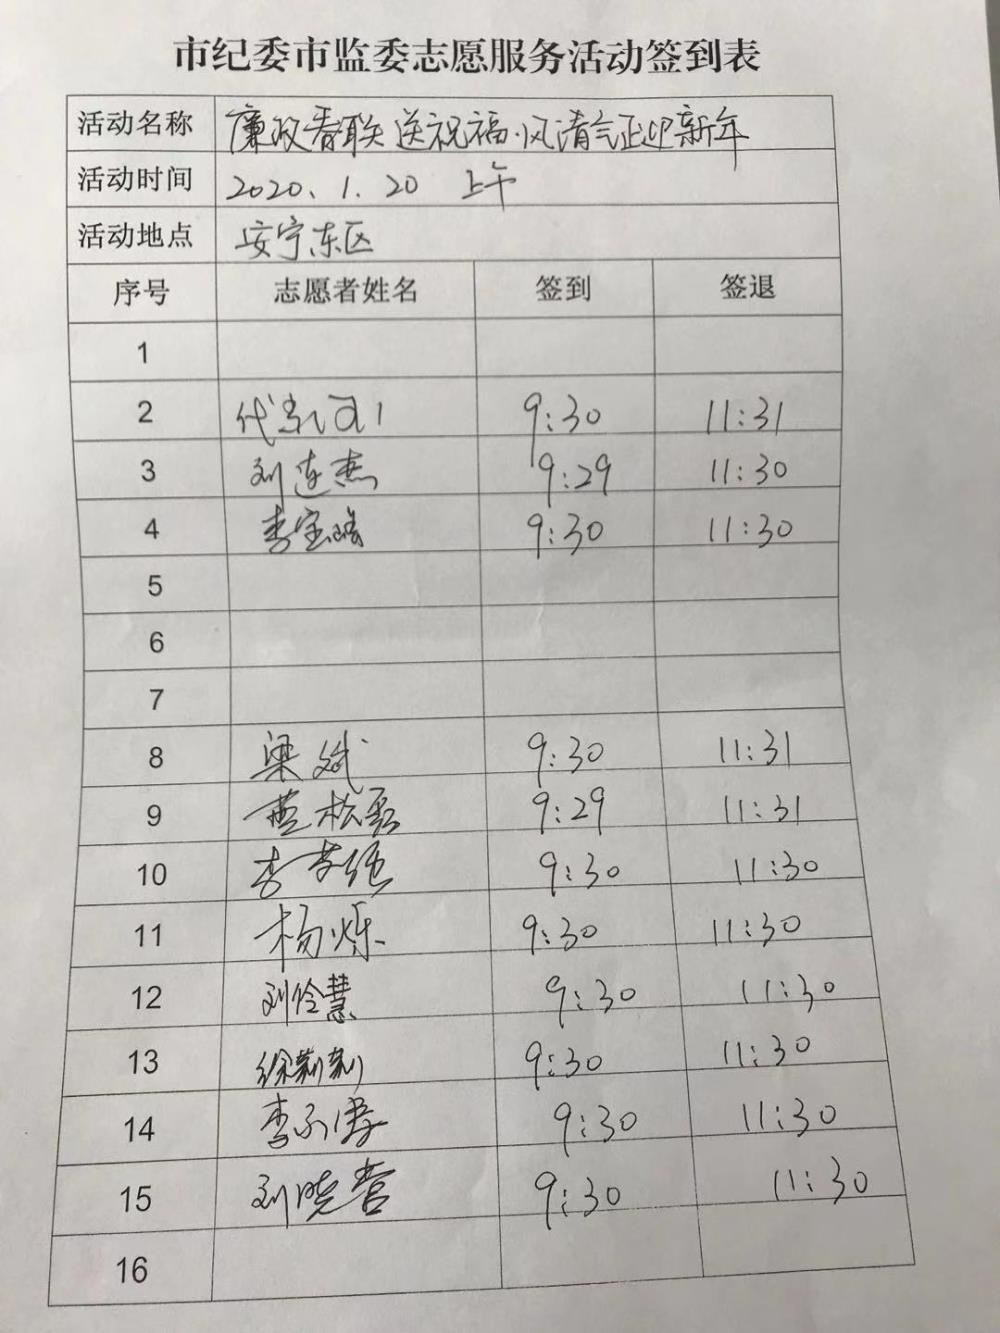 市纪委市监委志愿服务活动签到表
活动名称 廉政春联送祝福·风清气正迎新年
活动时间 2020.1.20 上午
活动地点 安宁东区
序号 志愿者姓名 签到 签退
1
2 9:30 11:31
3 刘连杰 9:29 11:30
4 李宝 9:30 11:30
5
6
7
8 梁斌 9:30 11:31
9 9:29 11:31
10 李 9:30 11:30
11 杨烁 9:30 11:30
12 刘伶慧 9:30 11:30
13 徐莉莉 9:30 11:30
14 李 9:30 11:30
15 刘晓营 9:30 11:30
16